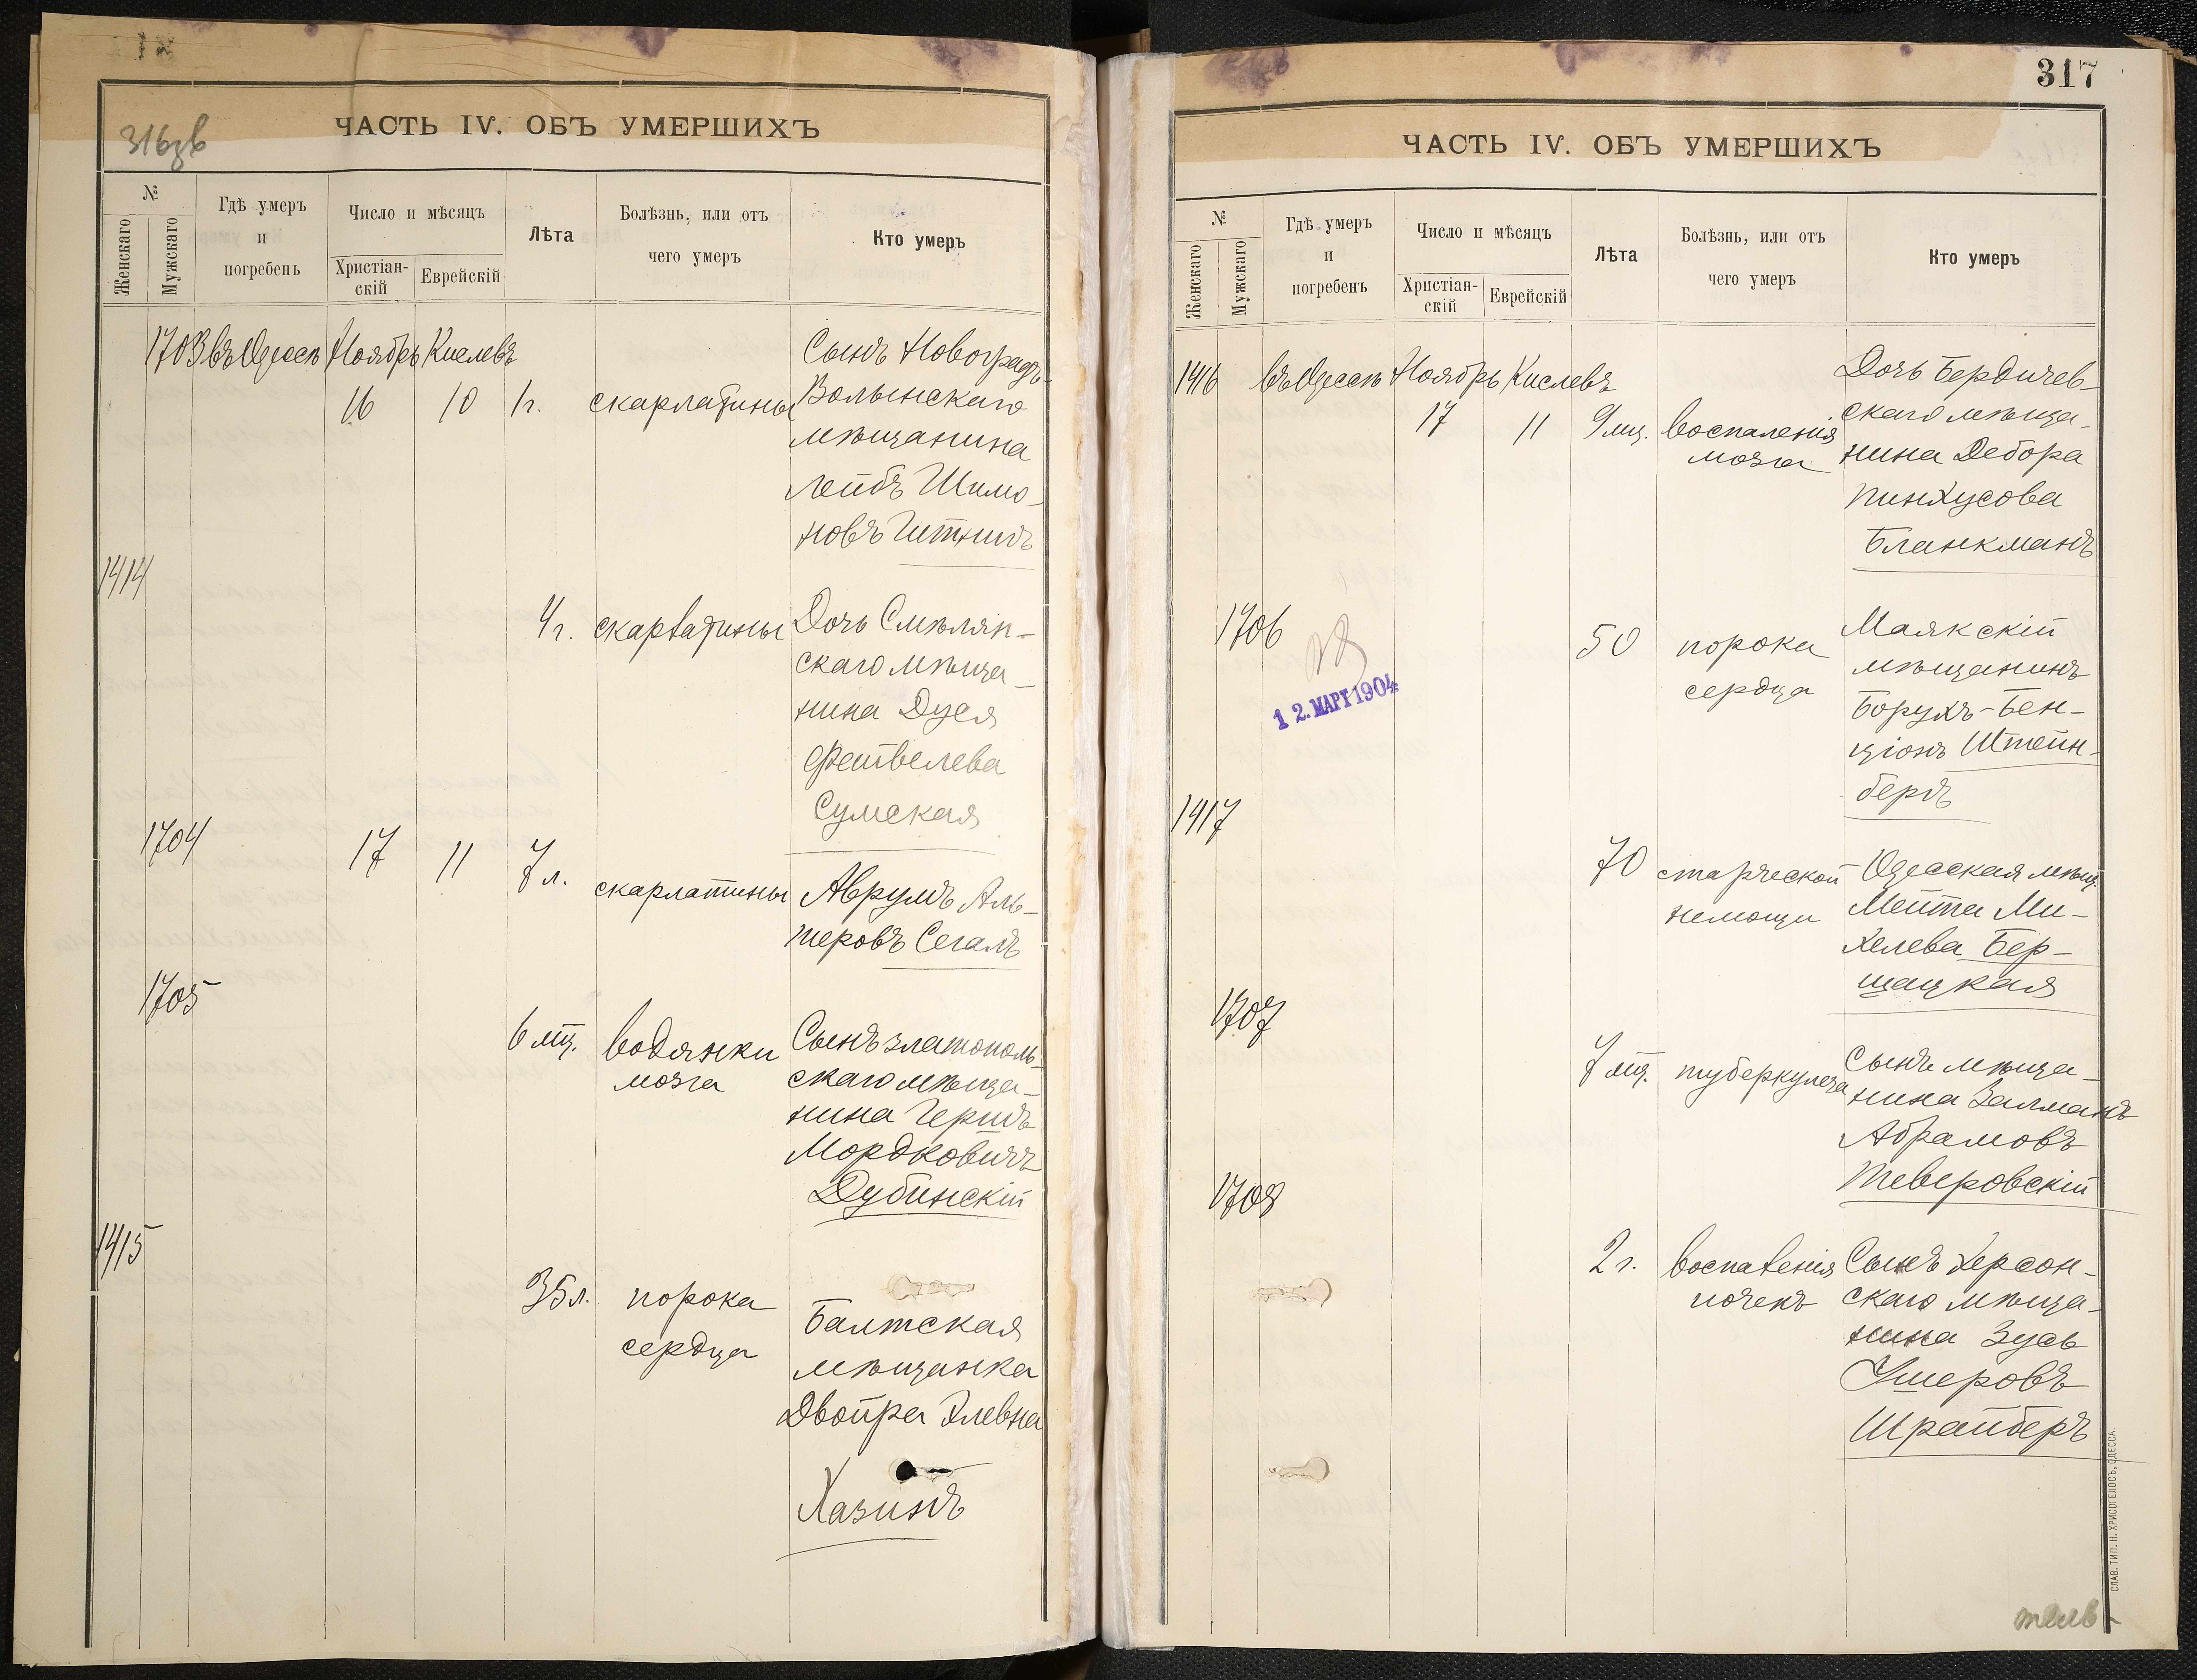 316зв
ЧАСТЬ IV. ОБЪ УМЕРШИХЪ
№
Женскаго
Мужскаго
Гдѣ умеръ
и
погребенъ
Число и мѣсяцъ
Христіан-
скій
Еврейскій
Лѣта
Болѣзнь, или отъ
чего умеръ
Кто умеръ
1703 въ Одессѣ Ноябрь Кислевъ
16 10 1 г. скарлатины
Сынъ Новоградъ-
Волынскаго
мѣщанина
Лейбъ Шимо-
новъ Гитникъ
1414
4 г. скарлатины
Дочь Смѣлян-
скаго мѣща-
нина Дуся
Фейвелева
Сумская
1704 17 11 7 л. скарлатины
Аврумъ Аль-
теровъ Сегалъ
1705
6 мѣ. водянки
мозга
Сынъ златополь-
скаго мѣща-
нина Гершъ
Мордковичъ
Дубинскій
1415
35 л. порока
сердца
Балтская
мѣщанка
Двойра Элевна
Хазинъ
317
ЧАСТЬ IV. ОБЪ УМЕРШИХЪ
№
Женскаго
Мужскаго
Гдѣ умеръ
и
погребенъ
Число и мѣсяцъ
Христіан-
скій
Еврейскій
Лѣта
Болѣзнь, или отъ
чего умеръ
Кто умеръ
1416 въ Одессѣ Ноябрь Кислевъ
17 11 9 мц. воспаленія
мозга
Дочь Бердичев-
скаго мѣща-
нина Дебора
Пинхусова
Бланкманъ
1706
12. МАРТ 1904
50 порока
сердца
Маякскій
мѣщанинъ
Борухъ-Бен-
ціонъ Штейн-
бергъ
1417
70 старческой
немощи
Одесская мѣщ.
Мейта Ми-
хелева Бер-
шацкая
1707
7 мѣ. туберкулеза
Сынъ мѣща-
нина Залманъ
Абрамовъ
Теверовскій
1708
2 г. воспаленія
почекъ
Сынъ Херсон-
скаго мѣща-
нина Зусь
Ушеровъ
Шрайберъ
СЛАВ. ТИП. Н. ХРИСОГЕЛОСЪ, ОДЕССА.